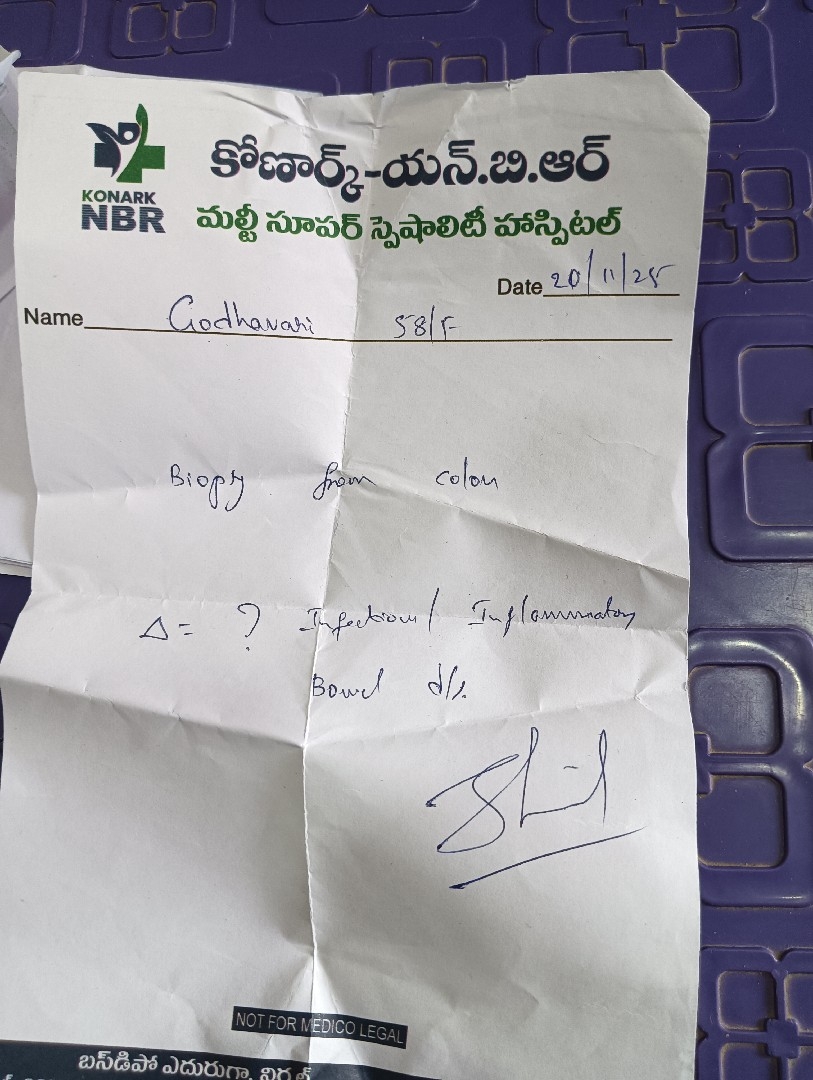 కోణార్క్-యన్.బి.ఆర్
KONARK
NBR
మల్టీ సూపర్ స్పెషాలిటీ హాస్పిటల్
Date 20/11/25
Name Godhavari 58/F
Biopsy from colon
Δ= ? Infection/ Inflammatory
Bowel d/s.
NOT FOR MEDICO LEGAL
బస్‌డిపో ఎదురుగా, నిర్మల్